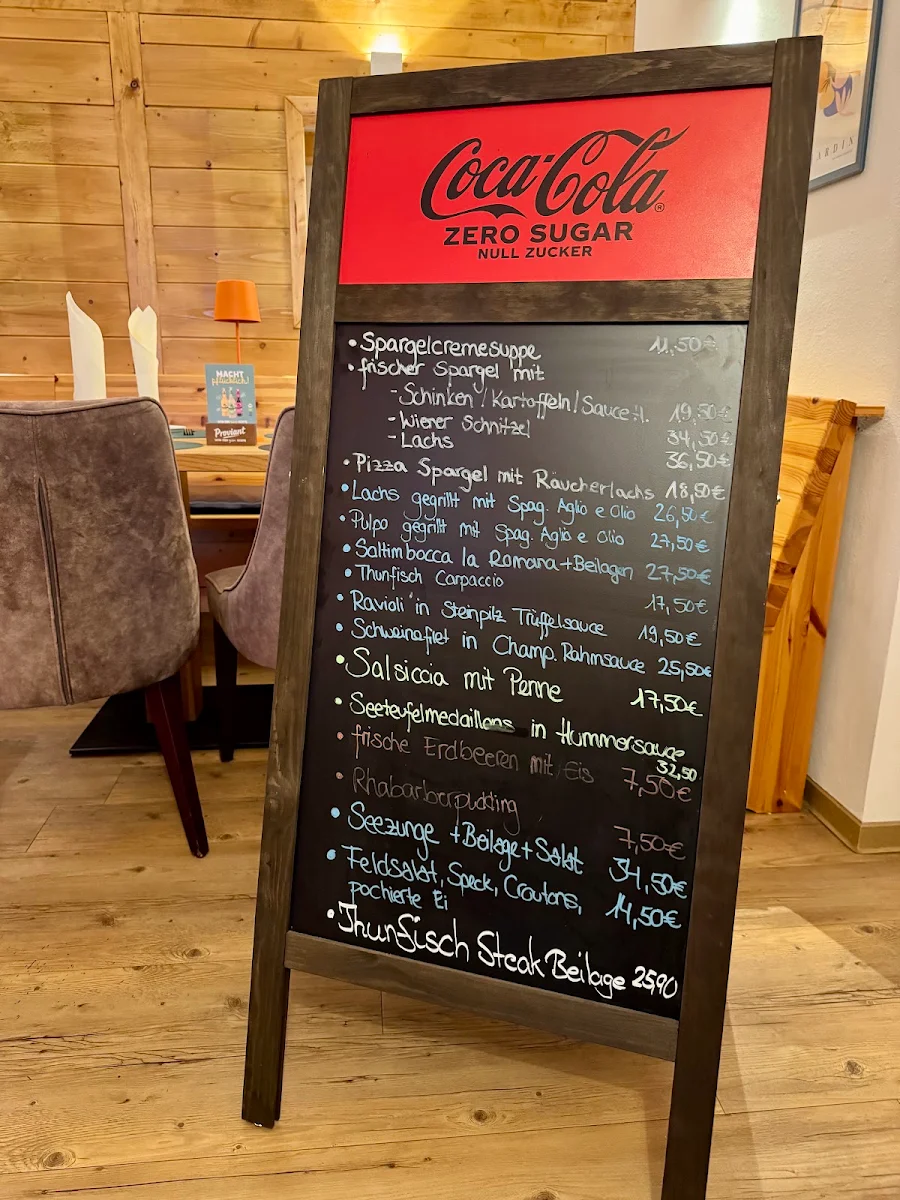 Coca-Cola®
ZERO SUGAR
NULL ZUCKER
ARDIN
MACHT
Proviant
• Spargelcremesuppe 11,50€
• frischer Spargel mit
- Schinken / Kartoffeln / Sauce H. 19,50€
- Wiener Schnitzel 34,50€
- Lachs 36,50€
• Pizza Spargel mit Räucherlachs 18,50€
• Lachs gegrillt mit Spag. Aglio e Olio 26,50€
• Pulpo gegrillt mit Spag. Aglio e Olio 27,50€
• Saltimbocca la Romana + Beilagen 27,50€
• Thunfisch Carpaccio 17,50€
• Ravioli in Steinpilz Trüffelsauce 19,50€
• Schweinefilet in Champ. Rahmsauce 25,50€
• Salsiccia mit Penne 17,50€
• Seeteufelmedaillons in Hummersauce 32,50
• frische Erdbeeren mit Eis 7,50€
• Rhabarberpudding 7,50€
• Seezunge + Beilage + Salat 34,50€
• Feldsalat, Speck, Croutons, 14,50€
pochierte Ei
• Thunfisch Steak Beilage 25,90